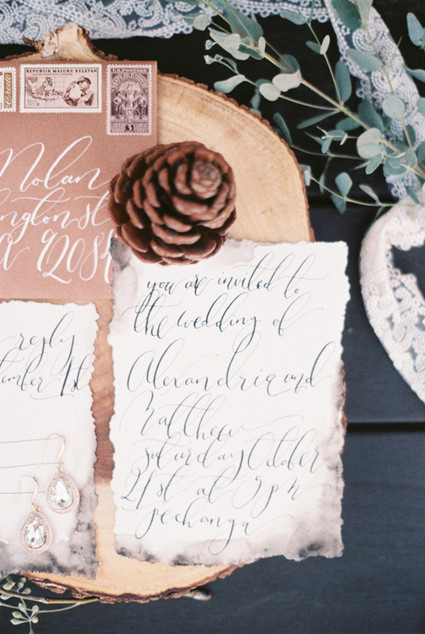 REPUBLIK MALUKU SELATAN
Nolan
ngton st
you are invited to
the wedding of
Alexandria and
Matthew
saturday October
21st at
pechanga
reply
tember 1st